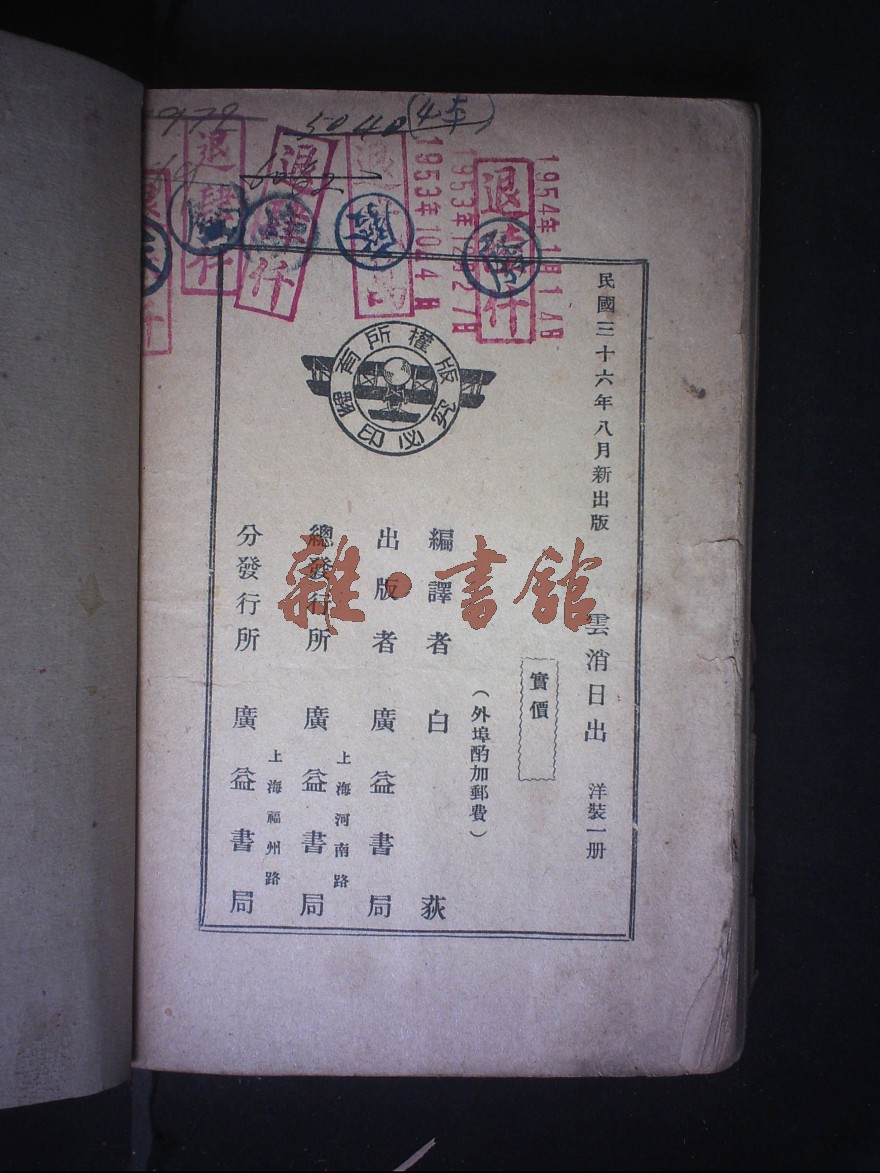 5040 (4本)
退
仟
退
仟
退
1953年10月4日
退
仟
1954年1月14日
民國三十六年八月新出版
雲消日出 洋裝一册
實價
(外埠酌加郵費)
版權所有
翻印必究
編譯者 白荻
出版者 廣益書局
上海河南路
總發行所 廣益書局
上海福州路
分發行所 廣益書局
雜·書館